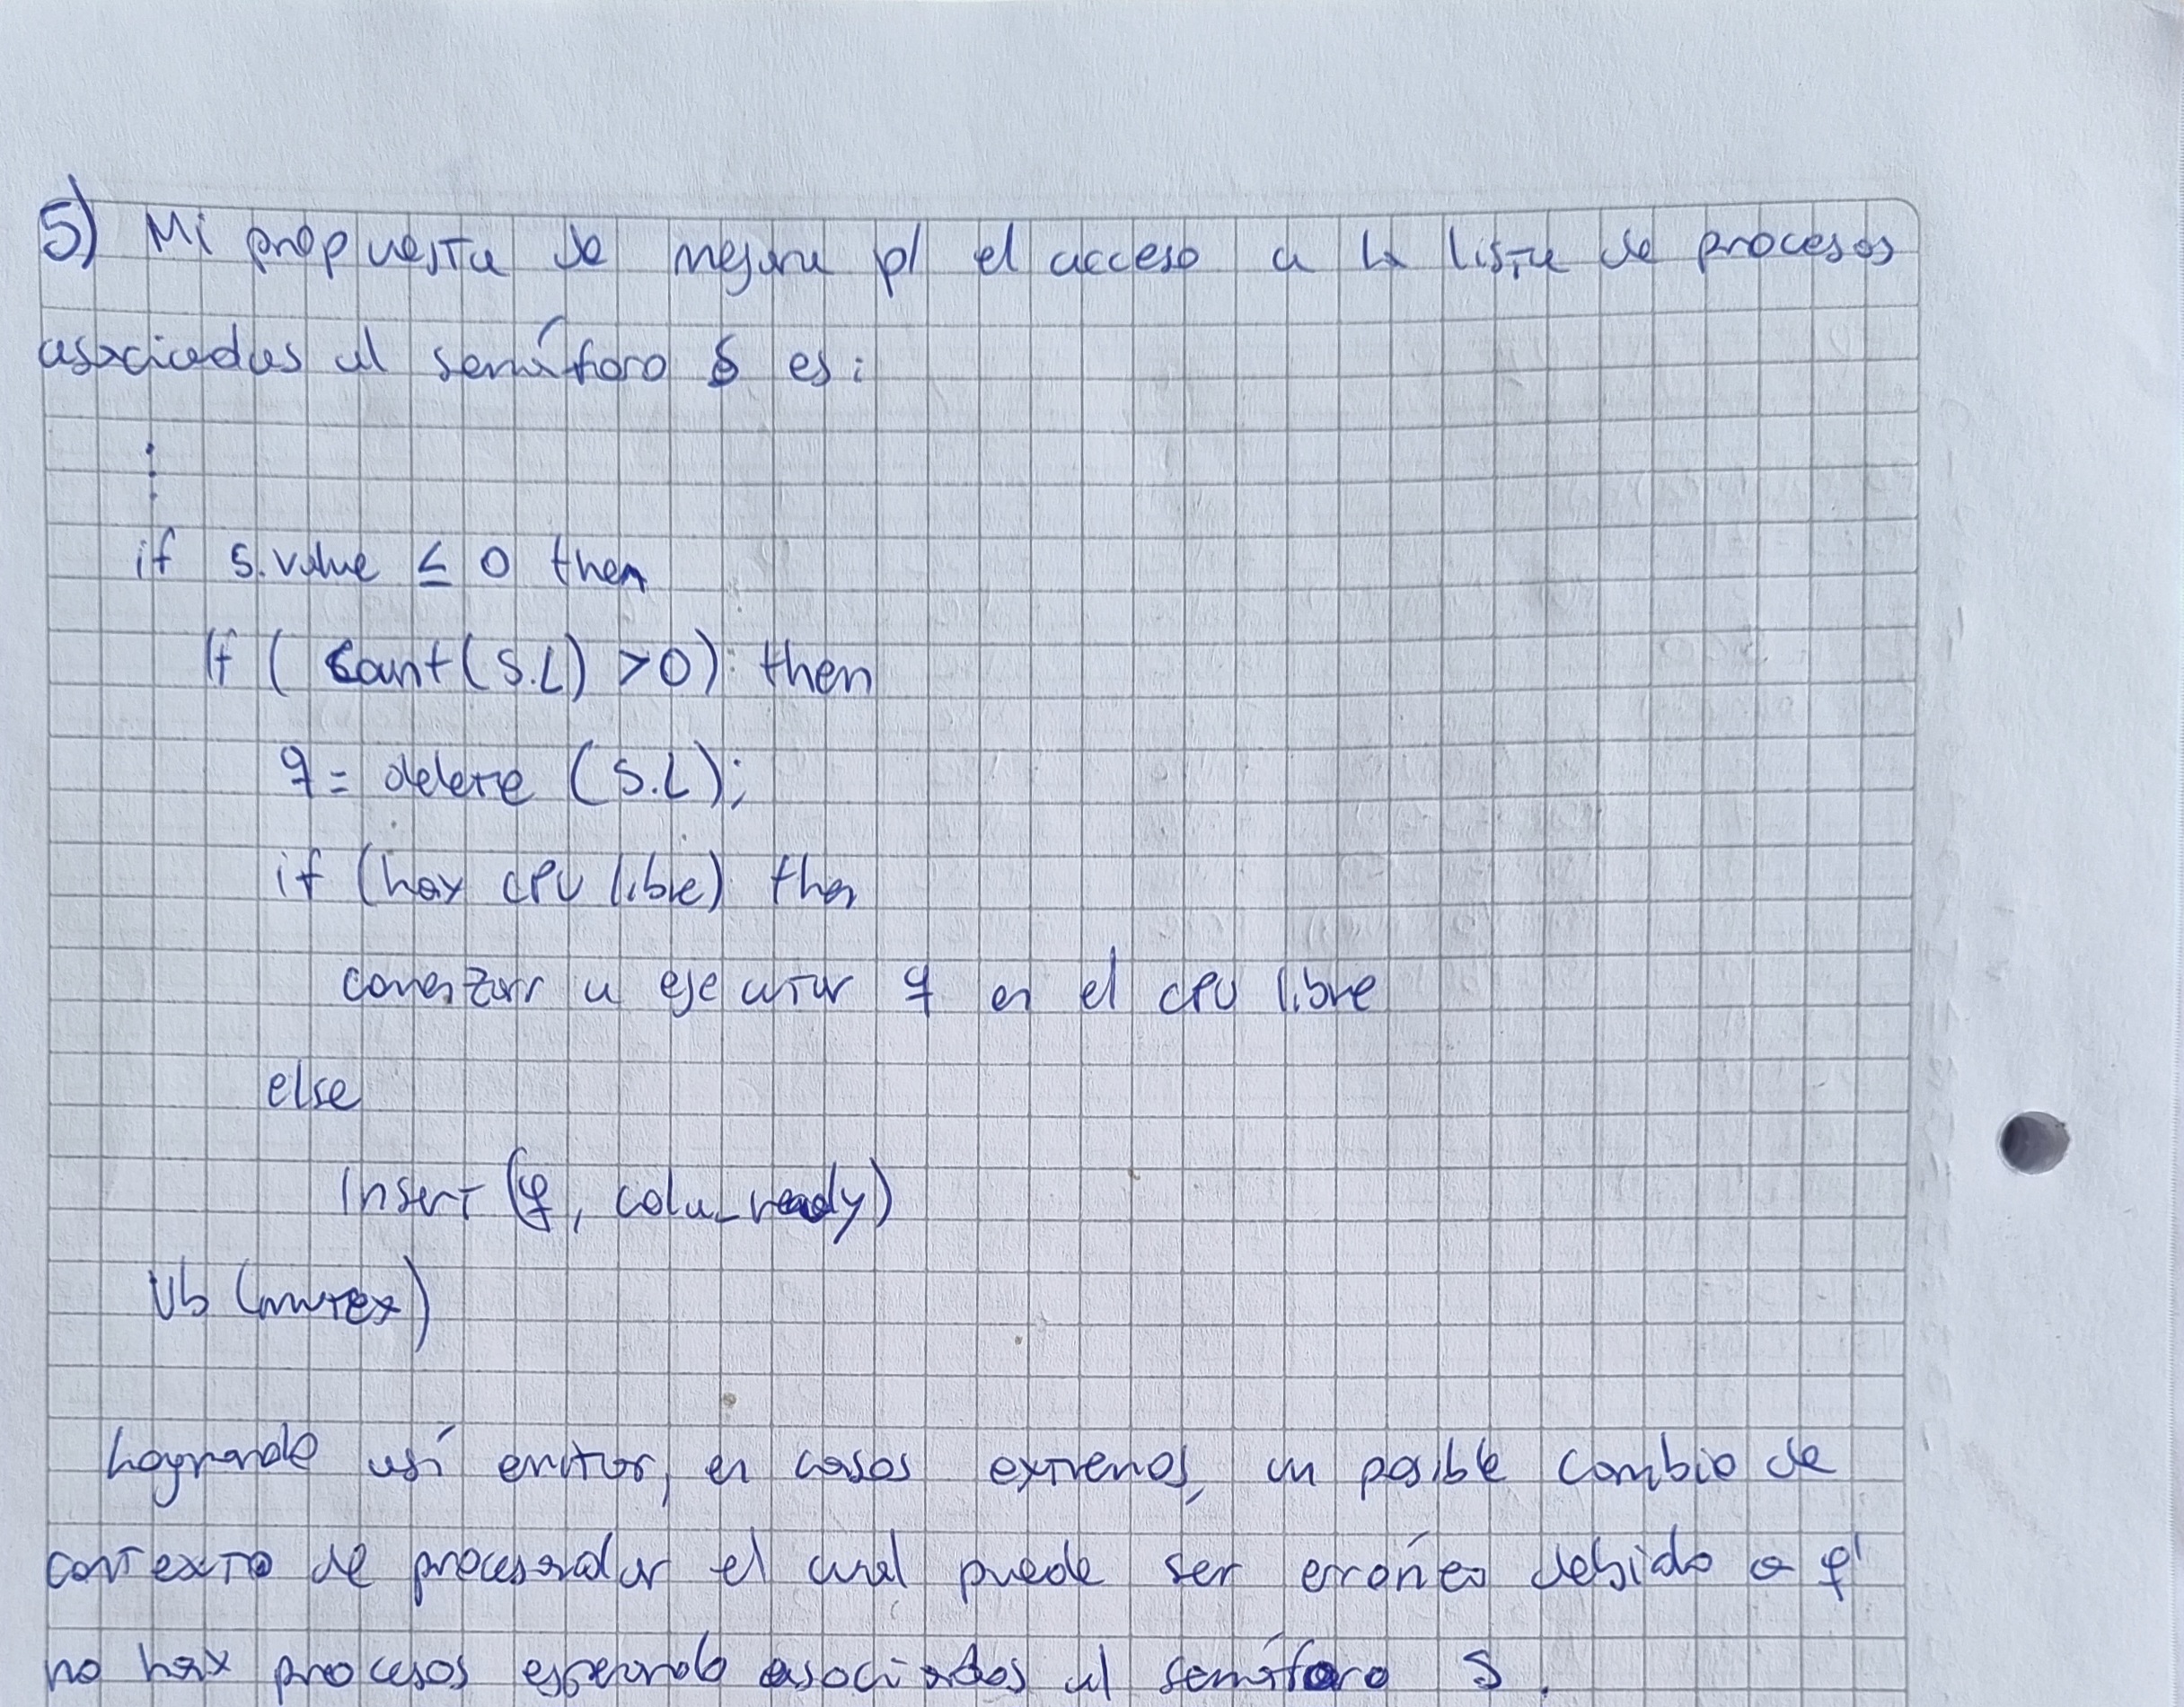 5) Mi propuesta de mejora p/ el acceso a la lista de procesos
asociados al semáforo S es:
⋮
if s.value ≤ 0 then
If ( Count(S.L) >0) then
q = delete (S.L);
if (hay CPU libre) then
comenzar a ejecutar q en el CPU libre
else
Insert (q, cola_ready)
Vb (mutex)
Logrando así evitar, en casos extremos, un posible cambio de
contexto de procesador el cual puede ser erróneo debido a q'
no hay procesos esperando asociados al semáforo S.